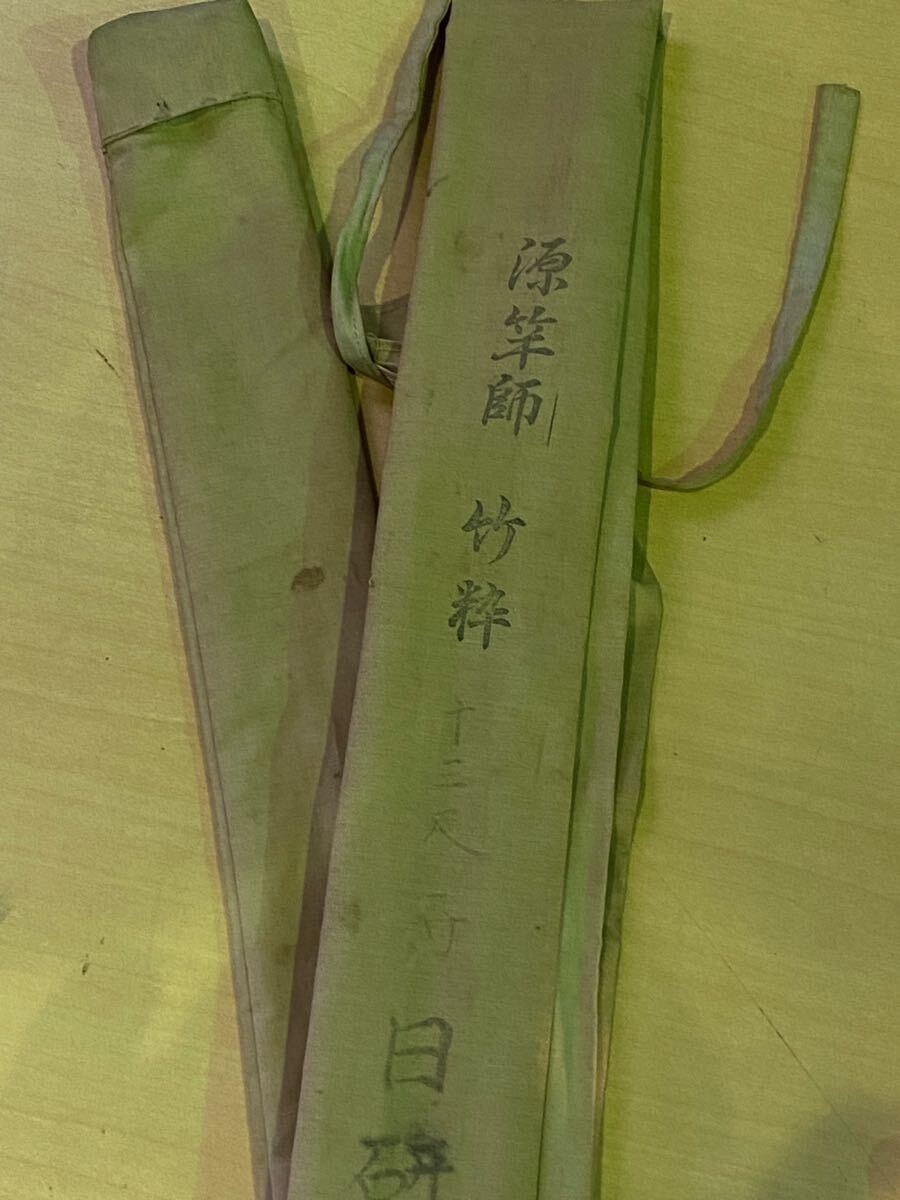 源竿師 竹粋
十三尺
日研